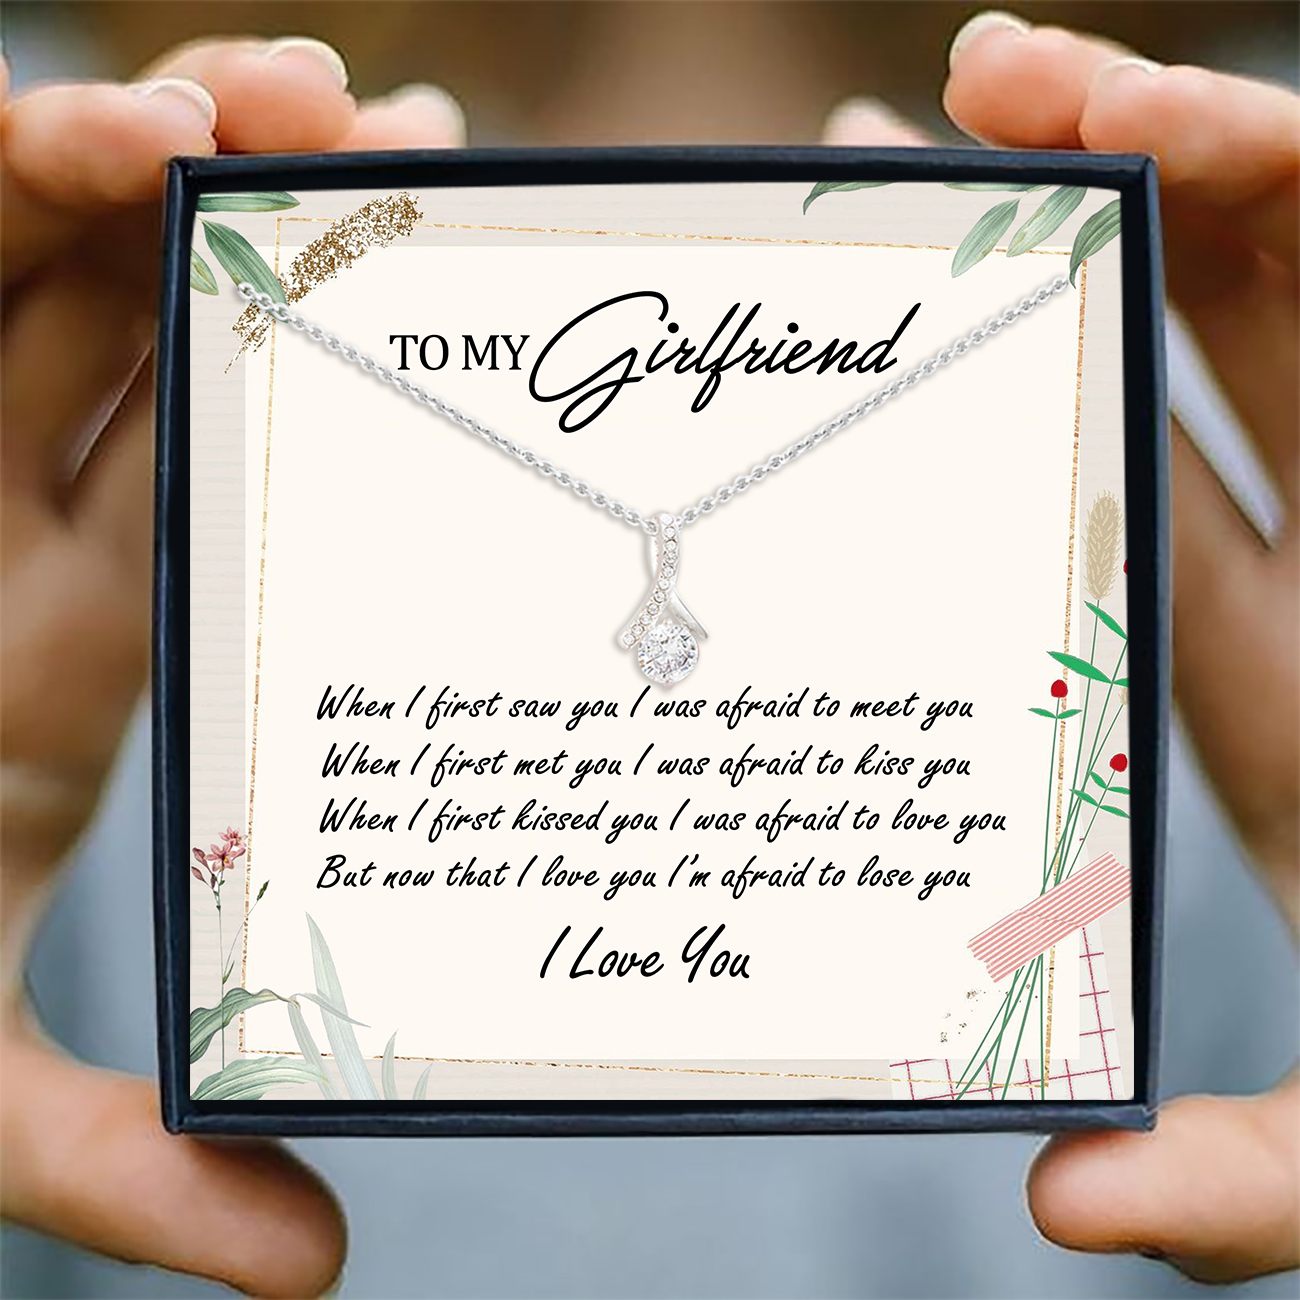 TO MY Girlfriend
When I first saw you I was afraid to meet you
When I first met you I was afraid to kiss you
When I first kissed you I was afraid to love you
But now that I love you I'm afraid to lose you
I Love You